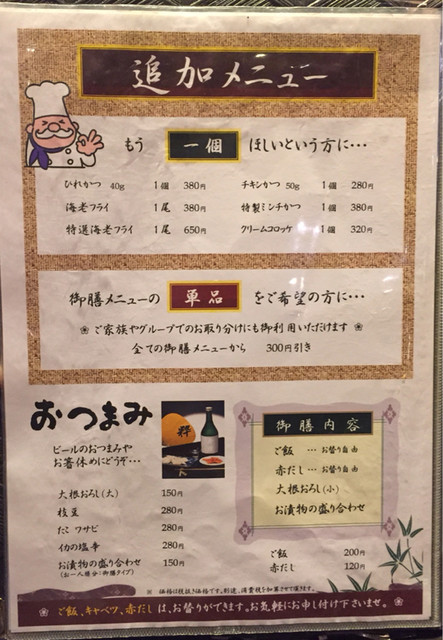 追加メニュー
もう 一個 ほしいという方に…
ひれかつ 40g 1個 380円
チキンかつ 50g 1個 280円
海老フライ 1尾 380円
特製ミンチかつ 1個 380円
特選海老フライ 1尾 650円
クリームコロッケ 1個 320円
御膳メニューの 単品 をご希望の方に…
❀ ご家族やグループでのお取り分けにも御利用いただけます ❀
全ての御膳メニューから 300円引き
おつまみ
ビールのおつまみや
お箸休めにどうぞ…
大根おろし(大) 150円
枝豆 280円
たこワサビ 280円
イカの塩辛 280円
お漬物の盛り合わせ 150円
(お一人様分:御膳タイプ)
御膳内容
ご飯 … お替り自由
赤だし … お替り自由
大根おろし(小)
お漬物の盛り合わせ
ご飯 200円
赤だし 120円
※ 価格は税抜き価格です。別途、消費税を加算させて頂きます。
❀ ご飯、キャベツ、赤だし は、お替りができます。お気軽にお申し付け下さいませ。 ❀